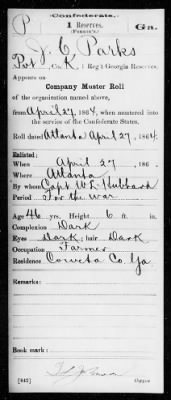 Confederate.
P 1 Reserves. Ga.
(Fannin's.)
J. C. Parks
Pvt, Co. K, 1 Reg't Georgia Reserves.
Appears on
Company Muster Roll
of the organization named above,
from April 27, 1864, when mustered into
the service of the Confederate States.
Roll dated Atlanta April 27, 1864.
Enlisted:
When April 27, 186 .
Where Atlanta
By whom Capt W. L. Hubbard
Period For the War
Age 46 yrs. Height 6 ft. in.
Complexion Dark
Eyes Dark; hair Dark
Occupation Farmer
Residence Coweta Co. Ga
Remarks:
Book mark:
(642) Copyist.